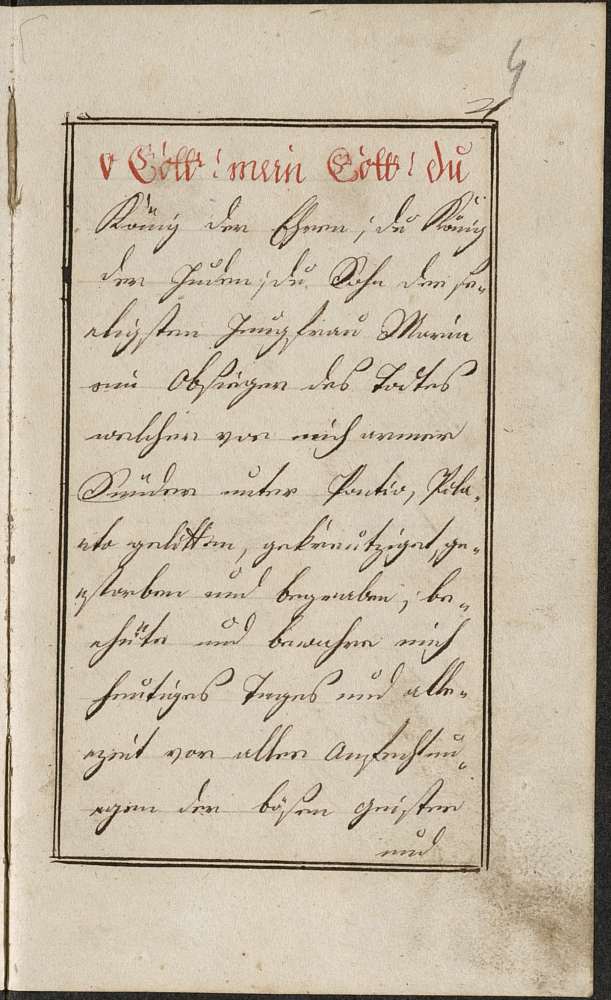 4
o Gott! mein Gott! du
König der Ehren; du König
der Juden; du Sohn der se„
eligsten Jungfrau Maria
ein Obsieger des Todtes
welcher vor mich armer
Sünder unter Pontio, Pila„
ato gelitten, gekreutziget, ge„
estorben und begraben; be„
ehüte und bewahre mich
heutiges Tages und alle„
ezeit vor allen Anfechtun„
egen der bösen Geister
und